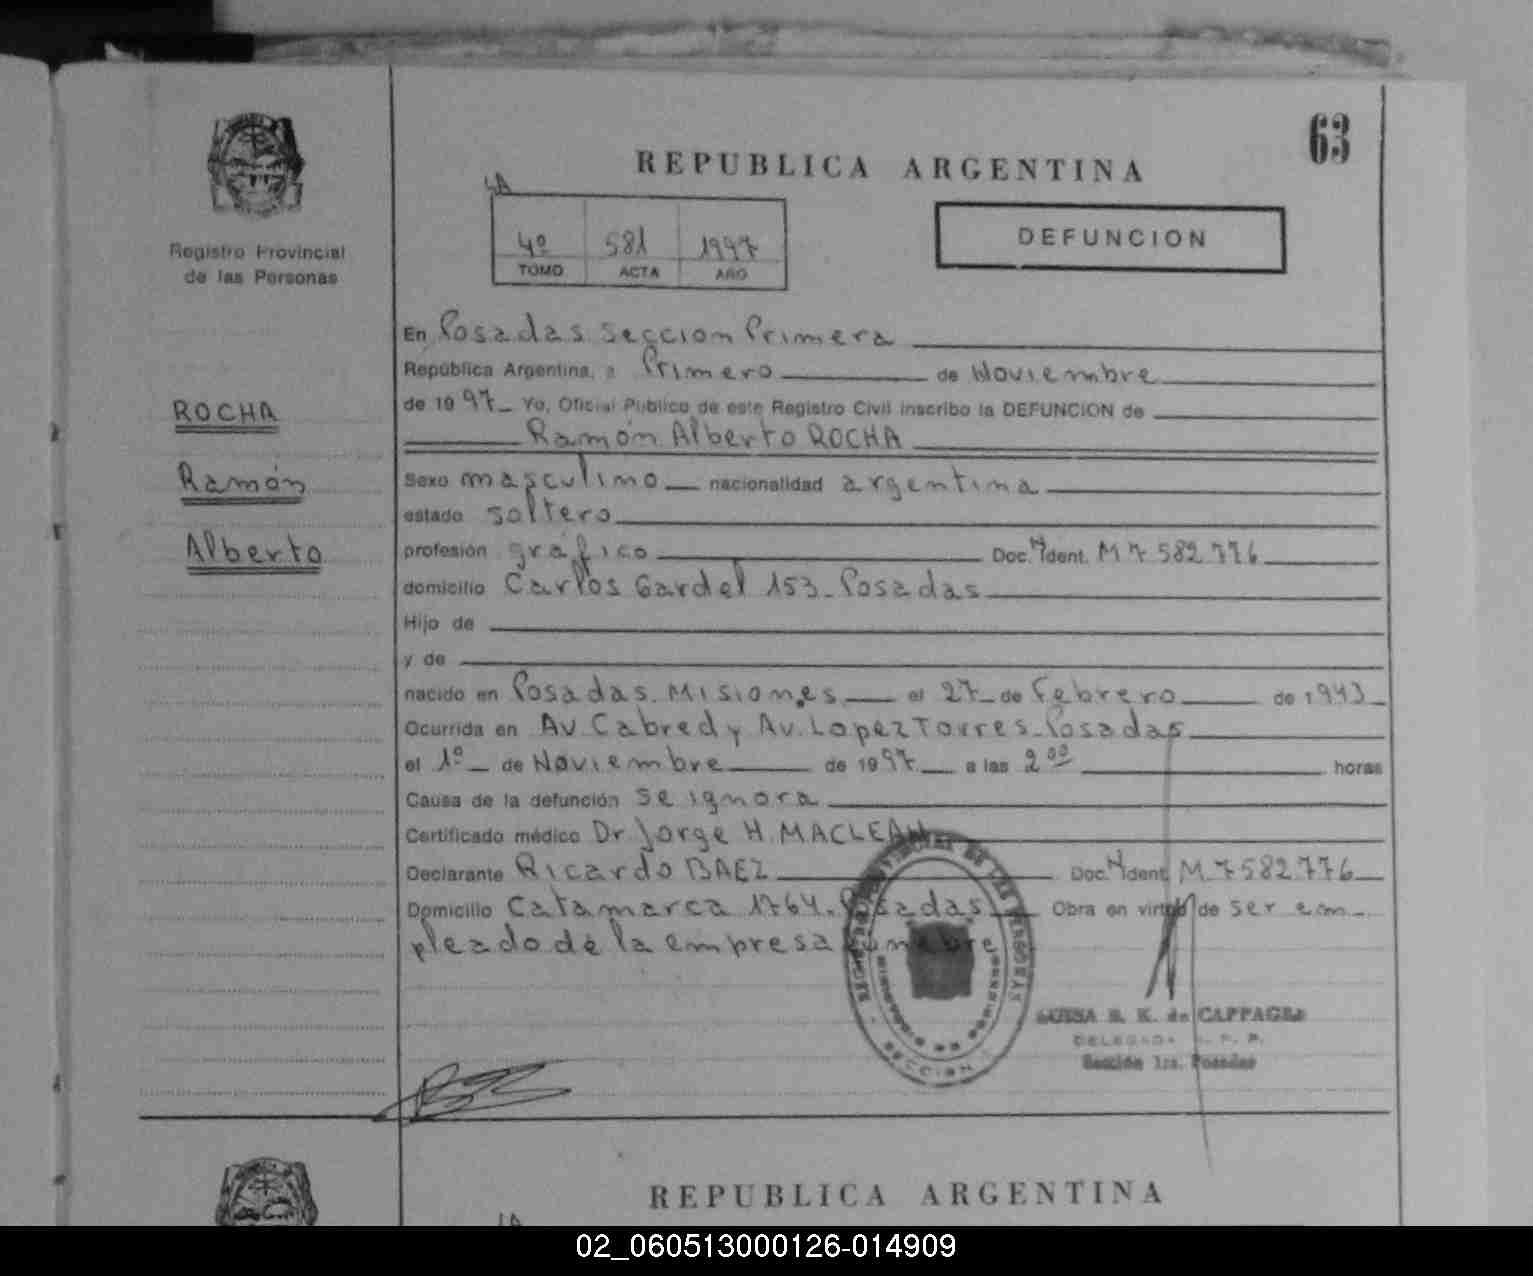 63
REPUBLICA ARGENTINA
Registro Provincial
de las Personas
1A
4º 581 1997
TOMO ACTA AÑO
DEFUNCION
En Posadas Seccion Primera
República Argentina, a Primero de Noviembre
de 1997 Yo, Oficial Público de este Registro Civil inscribo la DEFUNCION de
Ramón Alberto ROCHA
ROCHA
Ramón
Alberto
Sexo masculino nacionalidad argentina
estado soltero
profesión gráfico Doc. N Ident. M 7 582 776
domicilio Carlos Gardel 153 - Posadas
Hijo de
y de
nacido en Posadas. Misiones el 27 de Febrero de 1943
Ocurrida en Av. Cabred y Av. Lopez Torres - Posadas
el 1º de Noviembre de 1997 a las 2 00 horas
Causa de la defunción se ignora
Certificado médico Dr. Jorge H. MACLEAN
Declarante Ricardo BAEZ Doc. N Ident. M 7 582 776
Domicilio Catamarca 1764 - Posadas Obra en virtud de ser em-
pleado de la empresa funebre
PROVINCIAL DE LAS PERSONAS
SECCION
de CAPPAGLI
DELEGADA R. P. P.
Sección 1ra. Posadas
REPUBLICA ARGENTINA
02_060513000126-014909